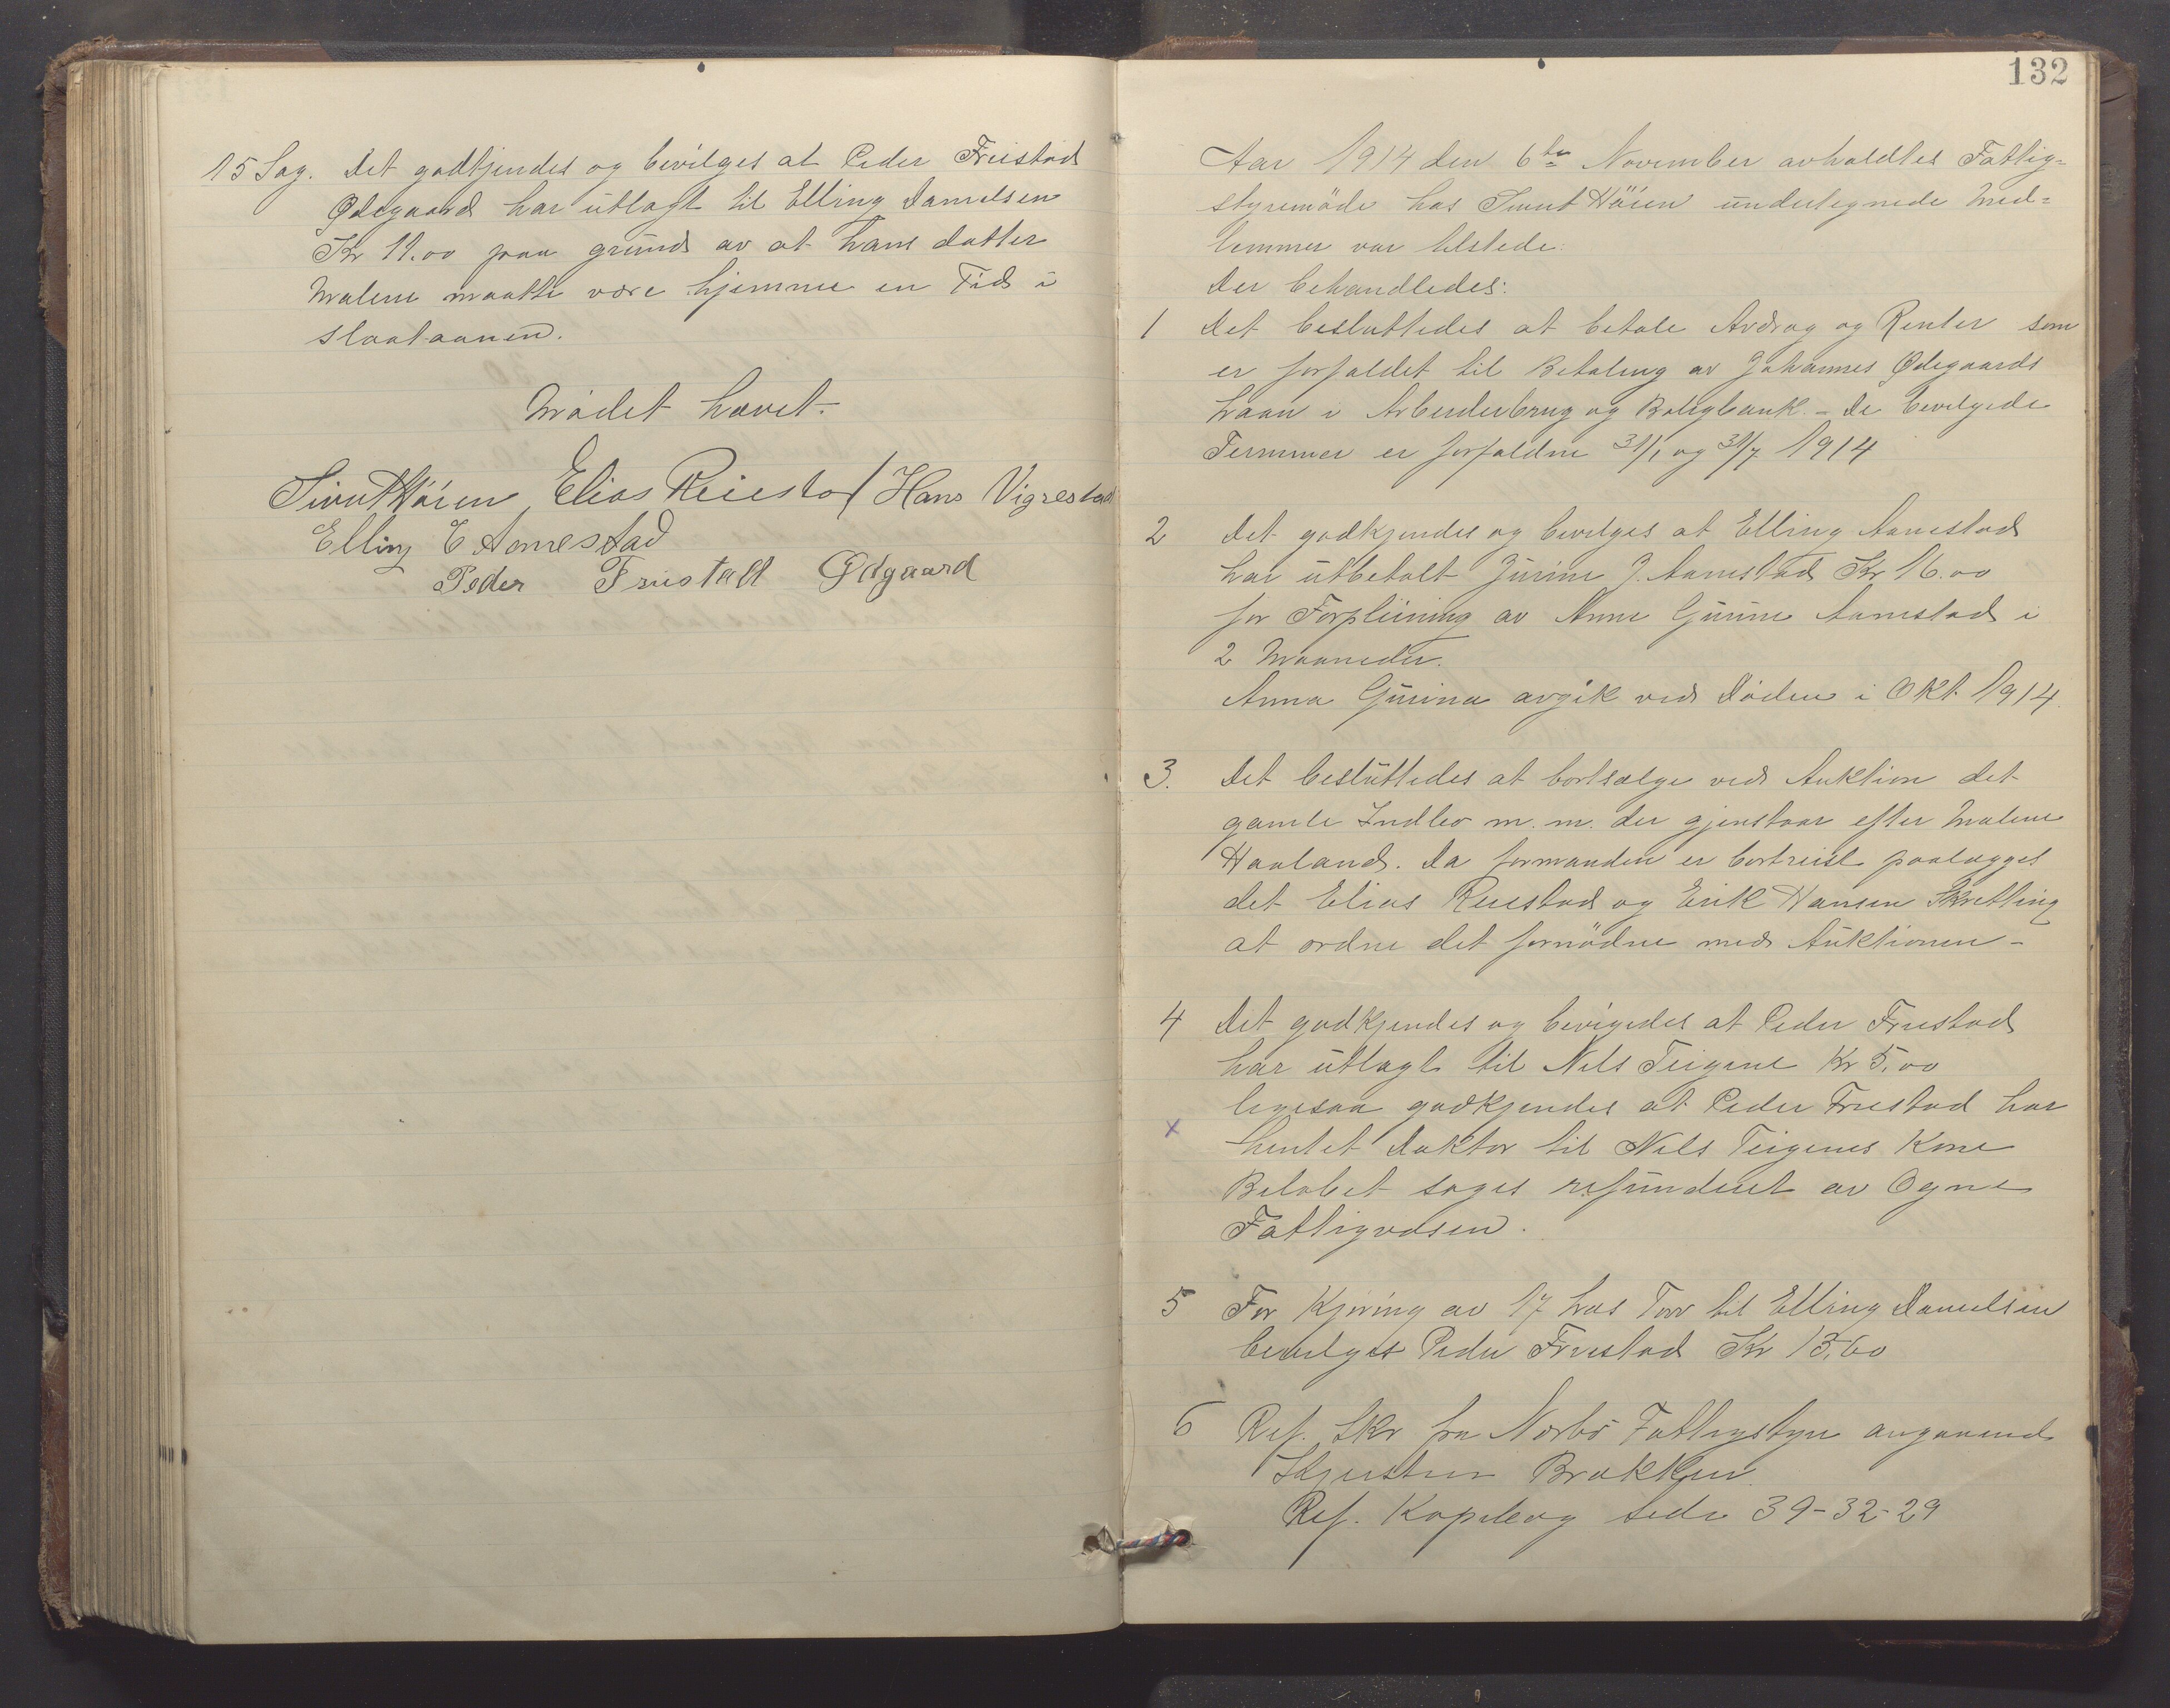 15 Sag. Det godkjendes og bevilges at Peder Friestad
Ødegaard har utlagt til Elling Danielsen
Kr 11.00 paa grund av at hans datter
Malene maatte være hjemme en Tid i
slaataanen.
Mødet hævet.
Sivert Höien Elias Reiestad Hans Vigrestad
Elling E Aanestad
Peder Friestad Ødgaard
132
Aar 1914 den 6te November avholdtes Fattig=
styremöde hos Sivert Höien undertegnede Med=
lemmer var tilstede.
Der behandledes:
1 Det besluttedes at betale Avdrag og Renter som
er forfaldet til Betaling av Johannes Ødegaards
Laan i Arbeiderbrug og Boligbank. - De bevilgede
Terminer er forfaldne 31/1 og 31/7 1914
2 Det godkjendes og bevilges at Elling Aanestad
har utbetalt Jurine J. Aanestad Kr 16.00
for Forpleining av Anne Gurine Aanestad i
2 Maaneder.
Anna Gurina avgik ved Döden i Okt 1914.
3. Det besluttedes at bortsælge ved Auktion det
gamle Indbo m. m. der gjenstaar efter Malene
Haaland. Da formanden er bortreist paalægges
det Elias Reiestad og Erik Hansen Skretting
at ordne det fornödne med Auktionen -
4 Det godkjendes og bevigedes at Peder Friestad
har utlagt til Nils Teigene Kr 5,00
ligesaa godkjendes at Peder Friestad har
x hentet Doktor til Nils Teigenes Kone
Beløbet søges refunderet av Ogne
Fattigvæsen.
5 For Kjøring av 17 læs Torv til Elling Danielsen
bevilges Peder Friestad Kr 13,60
6 Ref. Skr fra Nærbö Fattigstyre angaaende
Brækken
Ref. Kopibog side 39-32-29